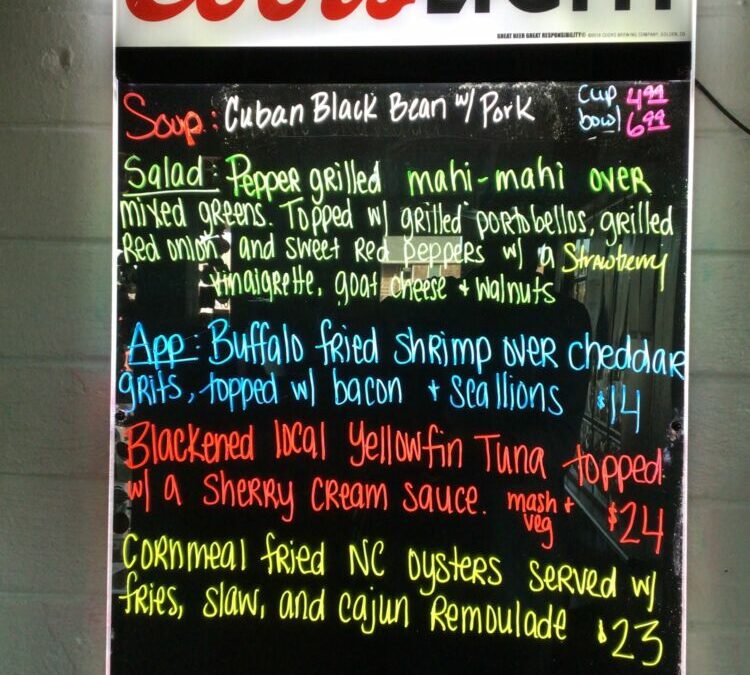 Coors LIGHT
GREAT BEER GREAT RESPONSIBILITY
COORS BREWING COMPANY, GOLDEN, CO
Soup: Cuban Black Bean w/ Pork
cup 4.99
bowl 6.99
Salad: Pepper grilled mahi-mahi over
mixed greens. Topped w/ grilled portobellos, grilled
Red onion and sweet Red peppers w/ a Strawberry
vinaigrette, goat cheese + walnuts
App: Buffalo fried shrimp over cheddar
grits, topped w/ bacon + scallions $14
Blackened local Yellowfin Tuna topped
w/ a Sherry cream sauce. mash + veg $24
Cornmeal fried NC oysters served w/
fries, slaw, and cajun Remoulade $23